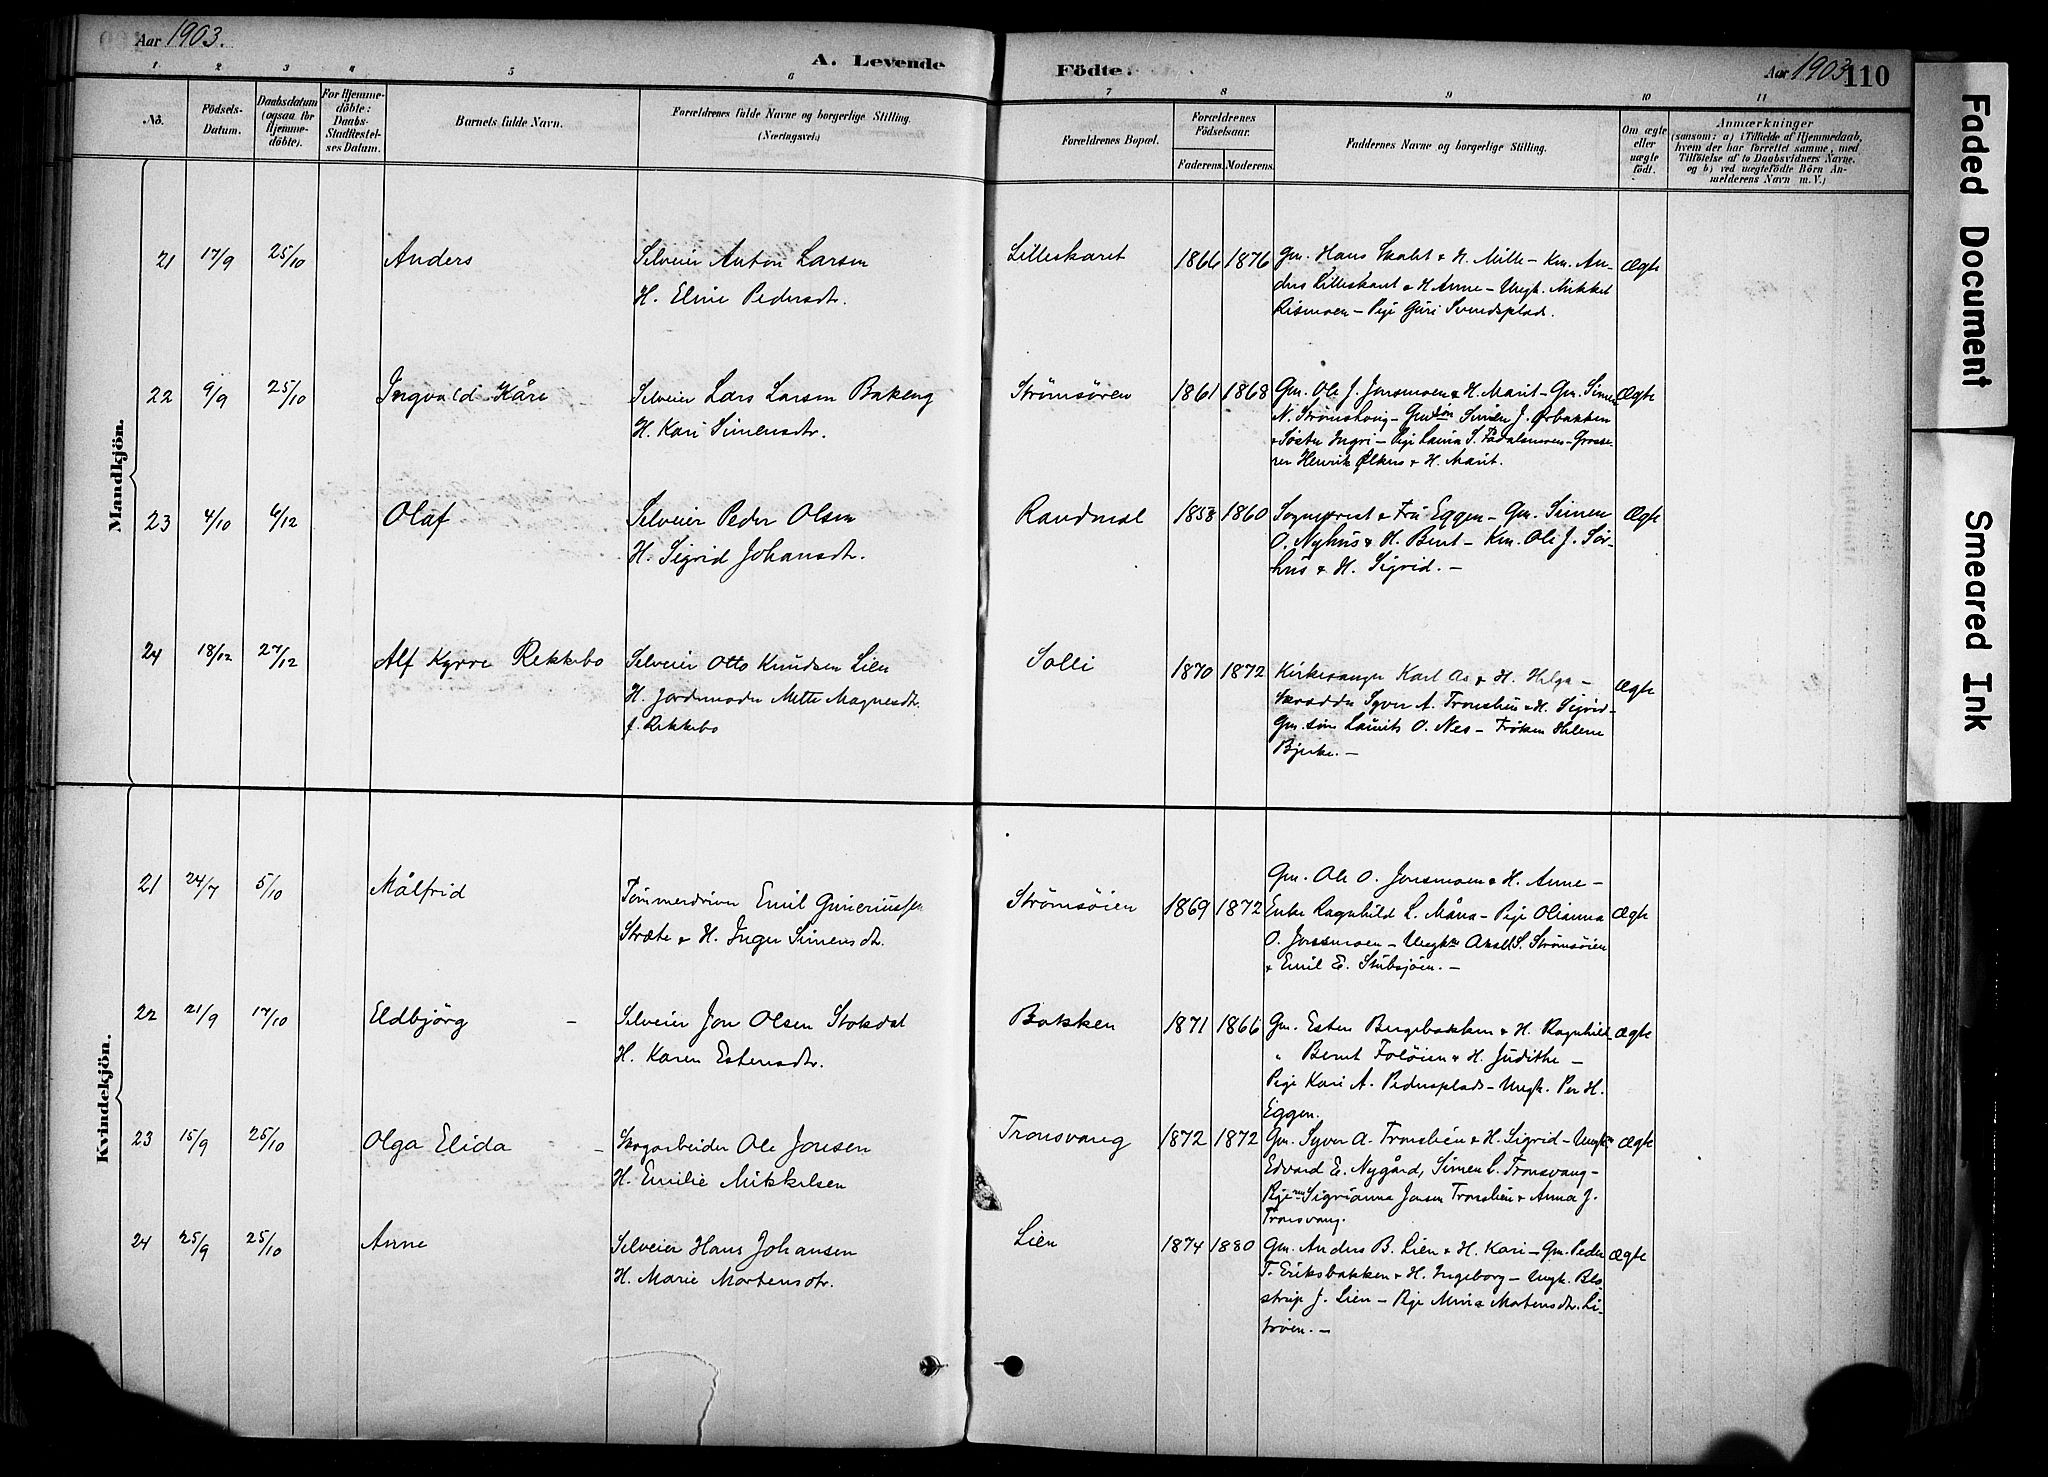 Aar 1903.
A. Levende
Födte.
Aar 1903
110
1 2 3 4 5 6 7 8 9 10 11
No.
Födsels-
Datum.
Daabsdatum
(ogsaa for
Hjemme-
döbte).
For Hjemme-
döbte:
Daabs-
Stadfæstel-
ses Datum.
Barnets fulde Navn.
Forældrenes fulde Navne og borgerlige Stilling.
(Næringsvei.)
Forældrenes Bopæl.
Forældrenes
Födselsaar.
Faderens. Moderens.
Faddernes Navne og borgerlige Stilling.
Om ægte
eller
uægte
født.
Anmærkninger
(saasom: a) i Tilfælde af Hjemmedaab,
hvem der har forrettet samme, med
Tilföielse af to Daabsvidners Navne.
og b) ved uægtefödte Börn An-
melderens Navn m. V.)
Mandkjön.
21 17/9 25/10 Anders
Selveier Anton Larsen
H. Eline Pedersdr.
Lilleskaret 1866 1876
Gm. Hans Skalet & H. Mille - Km. An-
ders Lilleskaret & H. Anne - Ungk. Mikkel
Rismoen - Pige Guri Svendsplads.
Ægte
22 9/9 25/10 Ingvald Kåre
Selveier Lars Larsen Bakeng
H. Kari Simensdtr.
Strømsøren 1861 1868
Gm. Ole J. Jonsmoen & H. Marit - Gm. Simen
N. Strømshoug - Gmsøn Simen J. Ørbakken
& Søster Ingri - Pige Laura S. Fådalsmoen - Grosse-
rer Henrik & H. Marit.
Ægte
23 4/10 6/12 Olaf
Selveier Peder Olsen
H. Sigrid Johansdtr.
Randmæl 1858 1860
Sogneprest & Fru Eggen - Gm. Simen
O. Nyhus & H. Berit - Km. Ole J. Sør-
hus & H. Sigrid. -
Ægte
24 18/12 27/12 Alf Kyrre Rekkebo
Selveier Otto Knudsen Lien
H. Jordemoder Mette Magnesdtr.
f. Rekkebo
Solli 1870 1872
Kirkesanger Karl As & H. Helga -
Skrædder Syver A. Tronslien & H. Sigrid -
Gm. søn Laurits O. Nes - Frøken Helene
Bjerke. -
Ægte
Kvindekjön.
21 24/7 5/10 Målfrid
Tømmerdriver Emil Gunerius
Stræte & H. Inger Simensdtr.
Strømsøien 1869 1872
Gm. Ole O. Jonsmoen & H. Anne -
Enke Ragnhild L. Måna - Pige Olianna
O. Jonsmoen - Ungkr Aksel S. Strømsøien
& Emil E. Stubsjøen. -
Ægte
22 21/9 17/10 Eldbjörg -
Selveier Jon Olsen Stokdal
H. Karen Estensdtr.
Bakken 1871 1866
Gm. Esten Bergebakken & H. Ragnhild
" Bernt Foløien & H. Judithe -
Pige Kari A. Pedersplads - Ungk. Per H.
Eggen.
Ægte
23 15/9 25/10 Olga Elida -
Skogarbeider Ole Jonsen
H. Emilie Mikkelsen
Tronsvang 1872 1872
Gm. Syver A. Tronslien & H. Sigrid - Ungkr
Edvard E. Nygård, Simen L. Tronsvang -
Pigerne Sigrianna Jonsen Tronslien & Anna J.
Tronsvang.
Ægte
24 25/9 25/10 Anne
Selveier Hans Johansen
H. Marie Mortensdtr.
Lien 1874 1880
Gm. Anders B. Lien & H. Kari - Gm. Peder
T. Eriksbakken & H. Ingeborg - Ungk. Bes-
strup J. Lien - Pige Mina Mortensdtr. Li-
trøen. -
Ægte
Faded Document
Smeared Ink